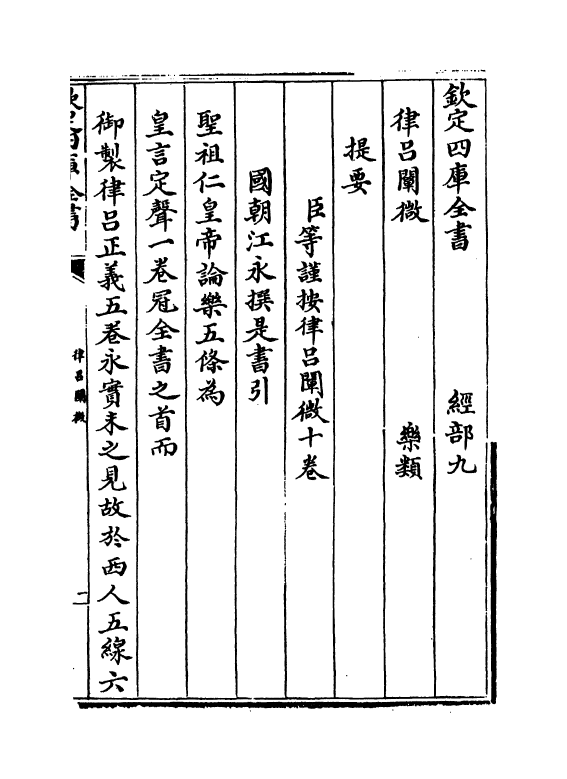 欽定四庫全書 經部九
律呂闡微 樂類
提要
臣等謹按律呂闡微十卷
國朝江永撰是書引
聖祖仁皇帝論樂五條為
皇言定聲一卷冠全書之首而
御製律呂正義五卷永實未之見故於西人五線六
律呂闡微